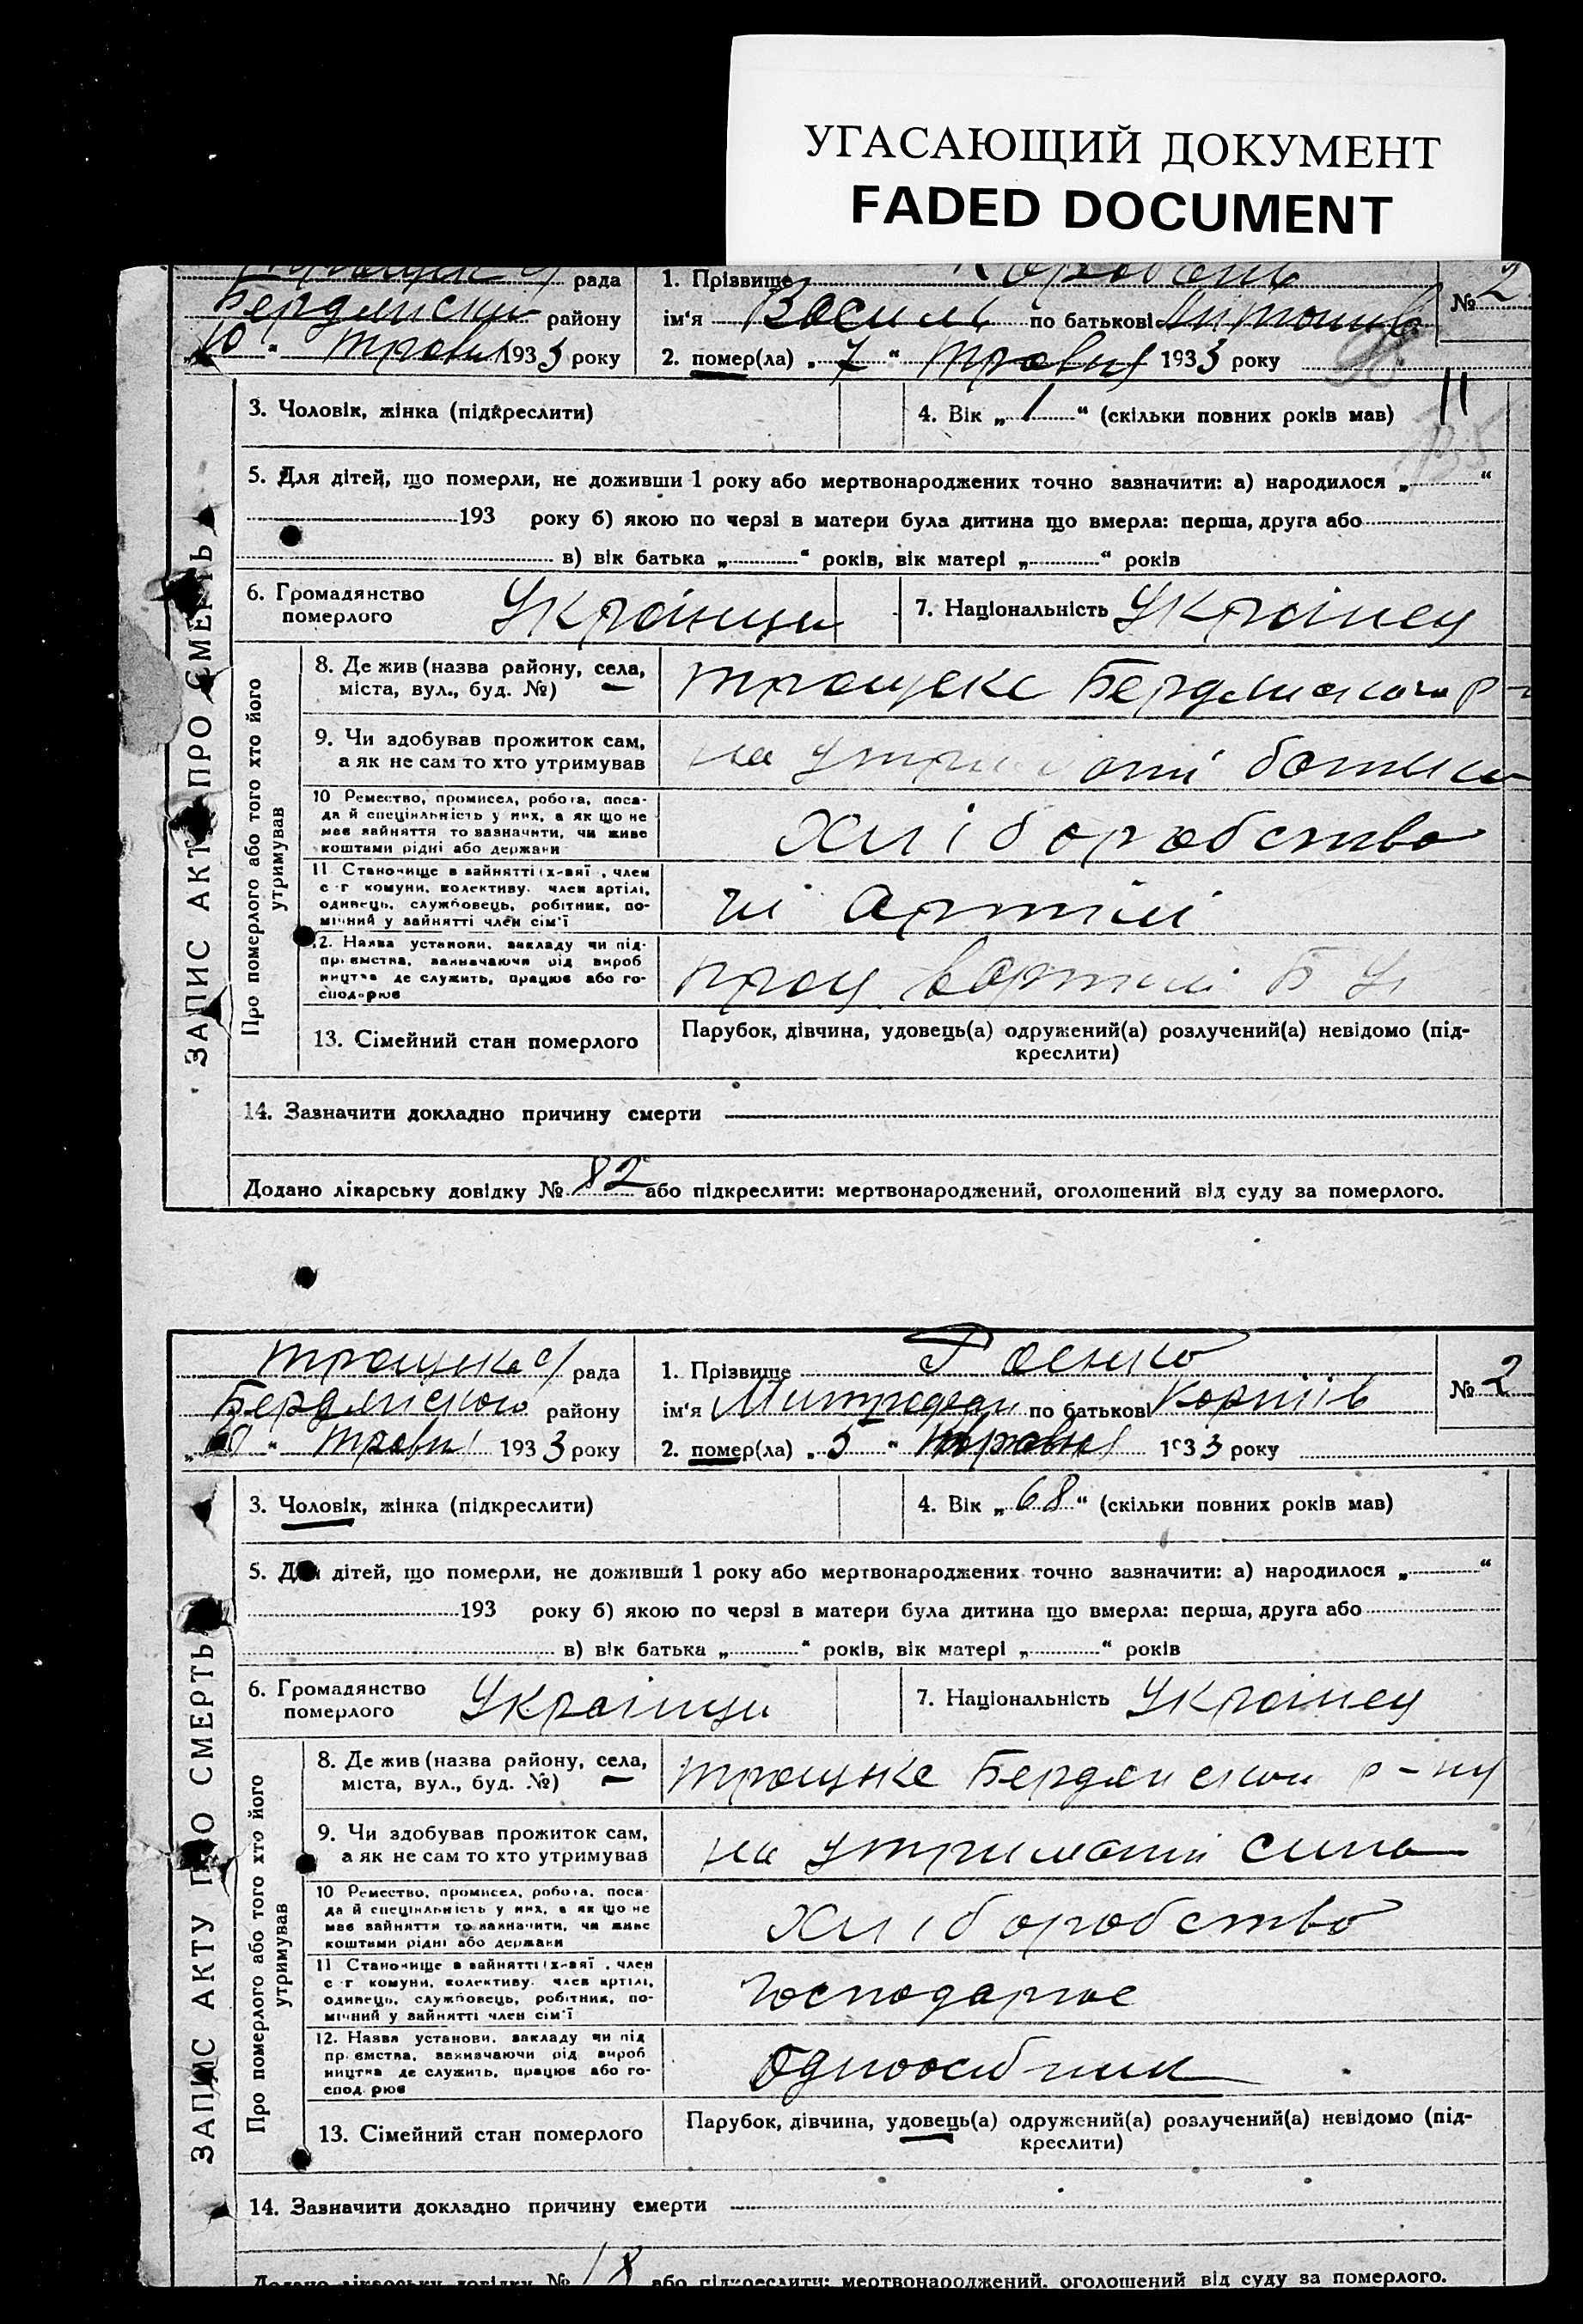 УГАСАЮЩИЙ ДОКУМЕНТ
FADED DOCUMENT
ЗАПИС АКТУ ПРО СМЕРТЬ
рада
Бердянськ району
"10" травня 1933 року
1. Прізвище
ім'я Василь по батькові
2. помер(ла) „7" травня 1933 року
№ 2
98
11
3. Чоловік, жінка (підкреслити)
4. Вік „1" (скільки повних років мав)
5. Для дітей, що померли, не доживши 1 року або мертвонароджених точно зазначити: а) народилося „ "
193 року б) якою по черзі в матери була дитина що вмерла: перша, друга або
в) вік батька „ " років, вік матері „ " років
6. Громадянство померлого Українци
7. Національність Українец
Про померлого або того хто його утримував
8. Де жив (назва району, села,
міста, вул., буд. №)
Троцьке Бердянського р-
9. Чи здобував прожиток сам,
а як не сам то хто утримував
на утриманні батька
10 Ремество, промисел, робота, поса-
да й спеціяльність у них, а як що не
має зайняття то зазначити, чи живе
коштами рідні або держави
Хліборобство
11 Становище в зайнятті (х-зяї, член
с-г комуни, колективу, член артілі,
одинець, службовець, робітник, по-
мічний у зайнятті член сім'ї
чл артілі
12. Назва установи, закладу чи під-
приємства, зазначаючи рід вироб
ництва де служить, працює або го-
сподарює
прац в артілі
13. Сімейний стан померлого
Парубок, дівчина, удовець(а) одружений(а) розлучений(а) невідомо (під-
креслити)
14. Зазначити докладно причину смерти
Додано лікарську довідку № 82 або підкреслити: мертвонароджений, оголошений від суду за померлого.
ЗАПИС АКТУ ПРО СМЕРТЬ
Троцька с/ рада
Бердянського району
" " травня 1933 року
1. Прізвище
ім'я по батькові Корніїв
2. помер(ла) „5" травня 1933 року
№ 2
3. Чоловік, жінка (підкреслити)
4. Вік „68" (скільки повних років мав)
5. Для дітей, що померли, не доживши 1 року або мертвонароджених точно зазначити: а) народилося „ "
193 року б) якою по черзі в матери була дитина що вмерла: перша, друга або
в) вік батька „ " років, вік матері „ " років
6. Громадянство померлого Українци
7. Національність Українец
Про померлого або того хто його утримував
8. Де жив (назва району, села,
міста, вул., буд. №)
Троцьке Бердянського р-ну
9. Чи здобував прожиток сам,
а як не сам то хто утримував
на утриманні сина
10 Ремество, промисел, робота, поса-
да й спеціяльність у них, а як що не
має зайняття то зазначити, чи живе
коштами рідні або держави
Хліборобство
11 Становище в зайнятті (х-зяї, член
с-г комуни, колективу, член артілі,
одинець, службовець, робітник, по-
мічний у зайнятті член сім'ї
господарює
12. Назва установи, закладу чи під
приємства, зазначаючи рід вироб
ництва де служить, працює або го-
сподарює
Одноосібник
13. Сімейний стан померлого
Парубок, дівчина, удовець(а) одружений(а) розлучений(а) невідомо (під-
креслити)
14. Зазначити докладно причину смерти
Додано лікарську довідку № 18 або підкреслити: мертвонароджений, оголошений від суду за померлого.